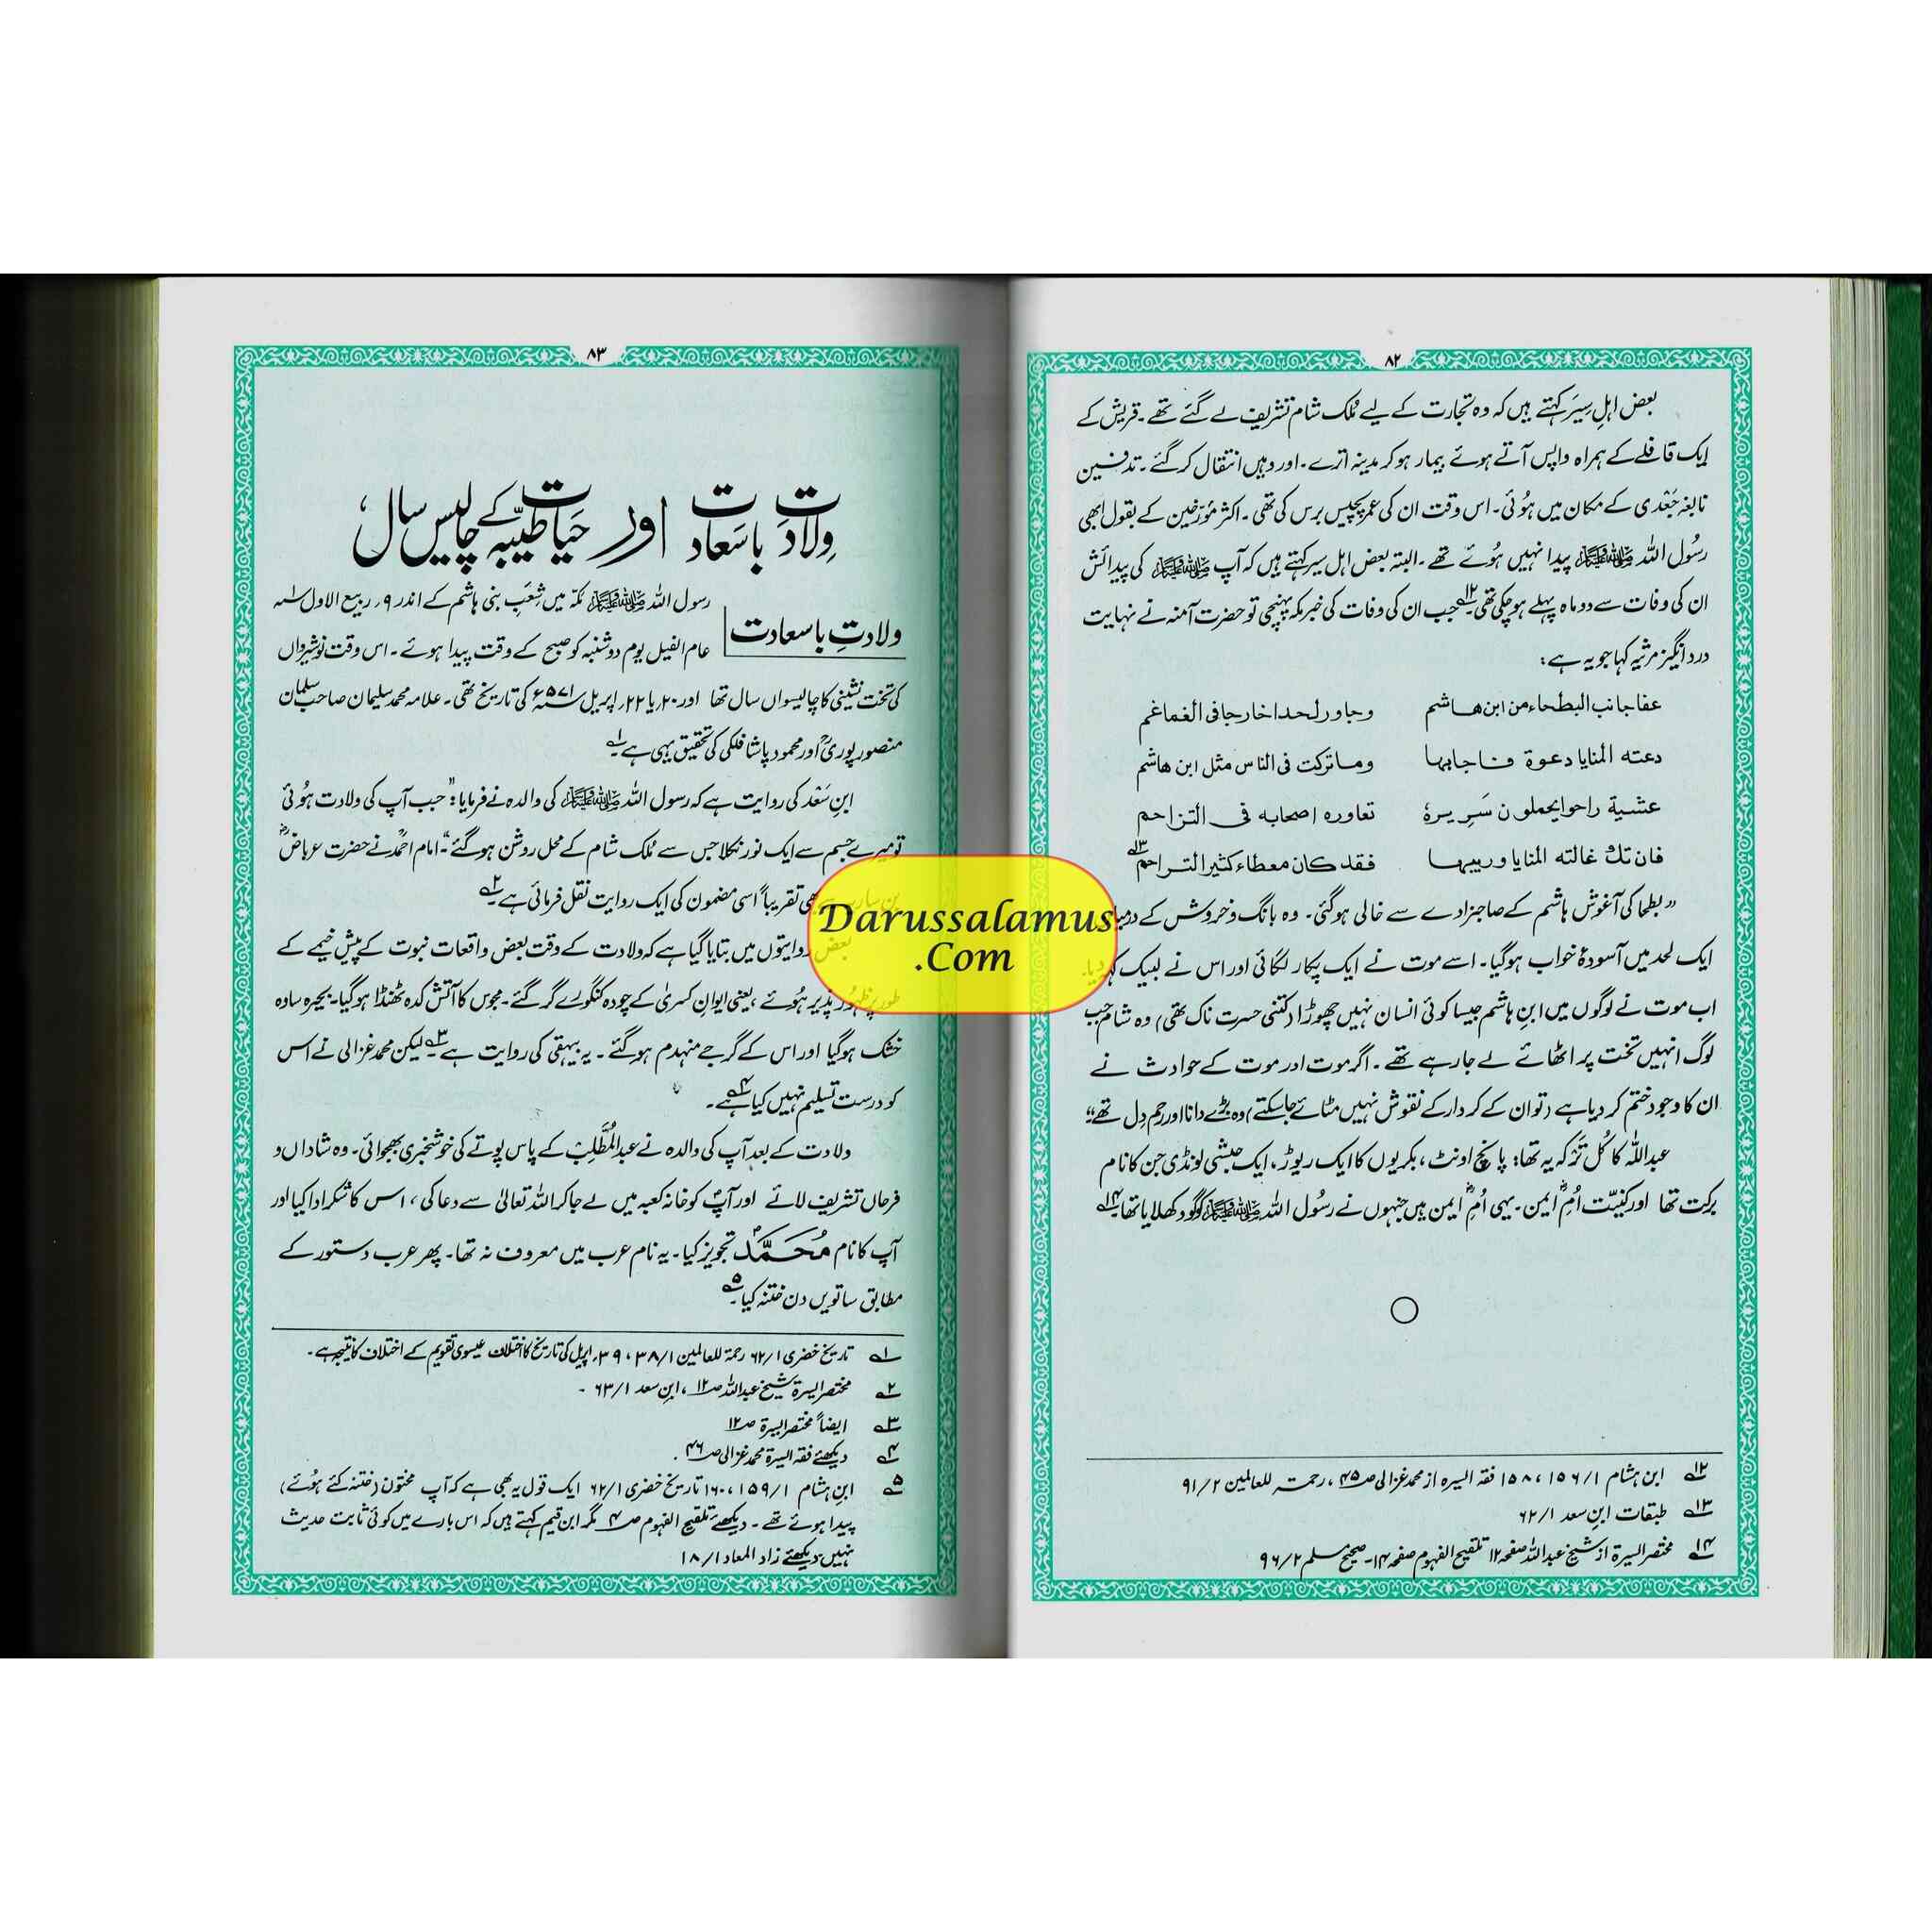 ۸۲
بعض اہلِ سِیَر کہتے ہیں کہ وہ تجارت کے لیے مُلک شام تشریف لے گئے تھے۔ قریش کے
ایک قافلے کے ہمراہ واپس آتے ہوئے بیمار ہو کر مدینہ اترے۔ اور وہیں انتقال کر گئے۔ تدفین
نابغہ جَعْدی کے مکان میں ہوئی۔ اس وقت ان کی عمر پچیس برس کی تھی۔ اکثر مؤرخین کے بقول ابھی
رسُول اللہ ﷺ پیدا نہیں ہُوئے تھے۔ البتہ بعض اہل سیر کہتے ہیں کہ آپ ﷺ کی پیدائش
ان کی وفات سے دو ماہ پہلے ہو چکی تھی۔۱۲ جب ان کی وفات کی خبر مکہ پہنچی تو حضرت آمنہ نے نہایت
درد انگیز مرثیہ کہا جو یہ ہے:
عفا جانب البطحاء من ابن هاشم وجاور لحدا خارجا فی الغماغم
دعته المنايا دعوة فاجابها وما تركت فی الناس مثل ابن هاشم
عشية راحوا يحملون سَرِيرهٗ تعاوره اصحابه فی التزاحم
فان تك غالته المنايا وريبها فقد كان معطاء كثير التراحم ۱۳
”بطحا کی آغوش ہاشم کے صاحبزادے سے خالی ہو گئی۔ وہ بانگ و خروش کے
ایک لحد میں آسودۂ خواب ہو گیا۔ اسے موت نے ایک پکار لگائی اور اس نے لبیک کہہ دیا۔
اب موت نے لوگوں میں ابنِ ہاشم جیسا کوئی انسان نہیں چھوڑا (کتنی حسرت ناک تھی) وہ شام جب
لوگ انہیں تخت پر اٹھائے لے جا رہے تھے۔ اگر موت اور موت کے حوادث نے
ان کا وجود ختم کر دیا ہے (تو ان کے کردار کے نقوش نہیں مٹائے جا سکتے) وہ بڑے دانا اور رحم دل تھے“
عبداللہ کا کُل ترکہ یہ تھا: پانچ اونٹ، بکریوں کا ایک ریوڑ، ایک حبشی لونڈی جن کا نام
برکت تھا اور کنیّت اُمِّ ایمن۔ یہی اُمِّ ایمن ہیں جنہوں نے رسُول اللہ ﷺ کو گود کھلایا تھا۔۱۴
۱۲ ابن ہشام ۱/۱۵۶، ۱۵۸ فقہ السیرہ از محمد غزالی ص۴۵، رحمۃ للعالمین ۲/۹۱
۱۳ طبقات ابنِ سعد ۱/۶۲
۱۴ مختصر السیرۃ از شیخ عبداللہ صفحہ ۱۲ تلقیح الفہوم صفحہ ۱۴۔ صحیح مسلم ۲/۹۶
۸۳
وِلادَت باسَعادَت اور حَیاتِ طیّبہ کے چالیس سال
ولادتِ باسعادت
رسول اللہ ﷺ مکہ میں شِعَبِ بنی ہاشم کے اندر ۹؍ ربیع الاول سنہ
عام الفیل یوم دوشنبہ کو صبح کے وقت پیدا ہوئے۔ اس وقت نوشیرواں
کی تخت نشینی کا چالیسواں سال تھا اور ۲۰؍ یا ۲۲؍ اپریل سنہ ۵۷۱ء کی تاریخ تھی۔ علامہ محمد سلیمان صاحب سلمان
منصورپوریؒ اور محمود پاشا فلکی کی تحقیق یہی ہے۔۱
ابنِ سَعْد کی روایت ہے کہ رسول اللہ ﷺ کی والدہ نے فرمایا: ”جب آپ کی ولادت ہُوئی
تو میرے جسم سے ایک نور نکلا جس سے مُلک شام کے محل روشن ہو گئے“۔ امام احمدؒ نے حضرت عرباضؓ
تقریباً اسی مضمون کی ایک روایت نقل فرمائی ہے۔۲
بعض روایتوں میں بتایا گیا ہے کہ ولادت کے وقت بعض واقعات نبوت کے پیش خیمے کے
طور پر ظہُور پذیر ہُوئے، یعنی ایوانِ کسریٰ کے چودہ کنگورے گر گئے۔ مجوس کا آتش کدہ ٹھنڈا ہو گیا۔ بحیرہ سادہ
خشک ہو گیا اور اس کے گرجے منہدم ہو گئے۔ یہ بیہقی کی روایت ہے۔۳ لیکن محمد غزالی نے اس
کو درست تسلیم نہیں کیا ہے۔۴
ولادت کے بعد آپ کی والدہ نے عبدالمُطَّلِبْ کے پاس پوتے کی خوشخبری بھجوائی۔ وہ شاداں و
فرحاں تشریف لائے اور آپؐ کو خانہ کعبہ میں لے جا کر اللہ تعالیٰ سے دعا کی، اس کا شکر ادا کیا اور
آپ کا نام مُحَمَّدؐ تجویز کیا۔ یہ نام عرب میں معروف نہ تھا۔ پھر عرب دستور کے
مطابق ساتویں دن ختنہ کیا۔۵
۱ تاریخ خضری ۱/۶۲ رحمۃ للعالمین ۱/۳۸، ۳۹؍ اپریل کی تاریخ کا اختلاف عیسوی تقویم کے اختلاف کا نتیجہ ہے۔
۲ مختصر السیرۃ شیخ عبداللہ ص۱۲، ابنِ سعد ۱/۶۳۔
۳ ایضاً مختصر السیرۃ ص۱۲
۴ دیکھئے فقہ السیرۃ محمد غزالی ص۴۶۔
۵ ابنِ ہشام ۱/۱۵۹، ۱۶۰ تاریخ خضری ۱/۶۲ ایک قول یہ بھی ہے کہ آپ مختون (ختنہ کئے ہوئے)
پیدا ہوئے تھے۔ دیکھئے تلقیح الفہوم ص۴ مگر ابن قیم کہتے ہیں کہ اس بارے میں کوئی ثابت حدیث
نہیں۔ دیکھئے زاد المعاد ۱/۱۸
Darussalamus
.Com